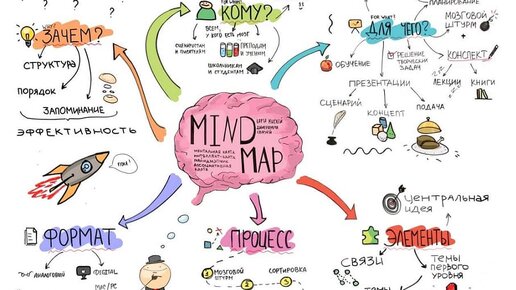 ЗАЧЕМ?
СТРУКТУРА
ПОРЯДОК
ЗАПОМИНАНИЕ
ЭФФЕКТИВНОСТЬ
КОМУ?
ВСЕМ,
У КОГО ЕСТЬ МОЗГ
СЦЕНАРИСТАМ
И ПИСАТЕЛЯМ
ПРЕПОДАМ
И УЧЕНЫМ
ШКОЛЬНИКАМ
И СТУДЕНТАМ
FOR WHAT?
ДЛЯ ЧЕГО?
ПЛАНИРОВАНИЕ
МОЗГОВОЙ
ШТУРМ
ОБУЧЕНИЕ
РЕШЕНИЕ
ТВОРЧЕСКИХ
ЗАДАЧ
КОНСПЕКТ
ЛЕКЦИИ
КНИГИ
ПРЕЗЕНТАЦИИ
СЦЕНАРИЙ
КОНЦЕПТ
ПОДАЧА
MIND
MAP
КАРТА МЫСЛЕЙ
МЕНТАЛЬНАЯ КАРТА
ИНТЕЛЛЕКТ-КАРТА
МАЙНДМЭППИНГ
АССОЦИАТИВНАЯ
КАРТА
ФОРМАТ
DIGITAL
PC
ПРОЦЕСС
1 МОЗГОВОЙ
ШТУРМ
СОРТИРОВКА
2
ЭЛЕМЕНТЫ
ЦЕНТРАЛЬНАЯ
ИДЕЯ
СВЯЗИ
ТЕМЫ
ПЕРВОГО
УРОВНЯ
ТЕМЫ